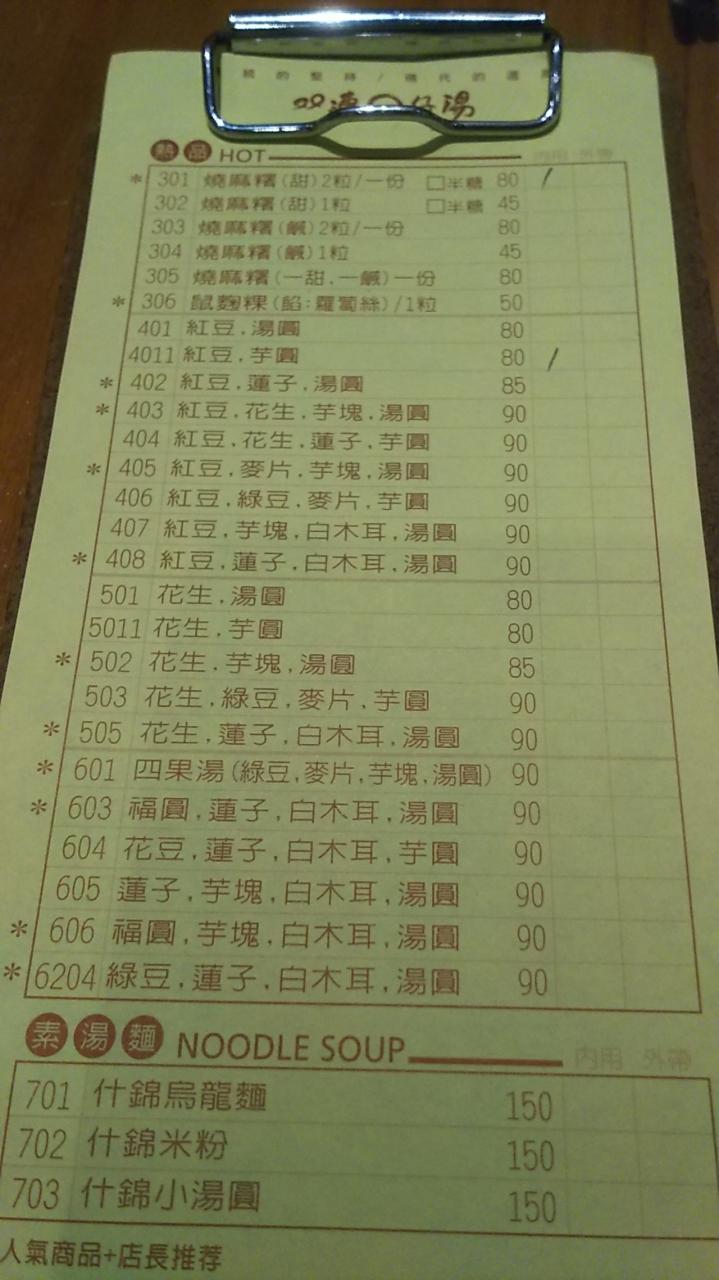 熱品 HOT 內用 外帶
* 301 燒麻糬(甜)2粒/一份 □半糖 80 /
302 燒麻糬(甜)1粒 □半糖 45
303 燒麻糬(鹹)2粒/一份 80
304 燒麻糬(鹹)1粒 45
305 燒麻糬(一甜.一鹹)一份 80
* 306 鼠麴粿(餡:蘿蔔絲)/1粒 50
401 紅豆.湯圓 80
4011 紅豆.芋圓 80 /
* 402 紅豆.蓮子.湯圓 85
* 403 紅豆.花生.芋塊.湯圓 90
404 紅豆.花生.蓮子.芋圓 90
* 405 紅豆.麥片.芋塊.湯圓 90
406 紅豆.綠豆.麥片.芋圓 90
407 紅豆.芋塊.白木耳.湯圓 90
* 408 紅豆.蓮子.白木耳.湯圓 90
501 花生.湯圓 80
5011 花生.芋圓 80
* 502 花生.芋塊.湯圓 85
503 花生.綠豆.麥片.芋圓 90
* 505 花生.蓮子.白木耳.湯圓 90
* 601 四果湯(綠豆.麥片.芋塊.湯圓) 90
* 603 福圓.蓮子.白木耳.湯圓 90
604 花豆.蓮子.白木耳.芋圓 90
605 蓮子.芋塊.白木耳.湯圓 90
* 606 福圓.芋塊.白木耳.湯圓 90
* 6204 綠豆.蓮子.白木耳.湯圓 90
素湯麵 NOODLE SOUP 內用 外帶
701 什錦烏龍麵 150
702 什錦米粉 150
703 什錦小湯圓 150
人氣商品+店長推荐